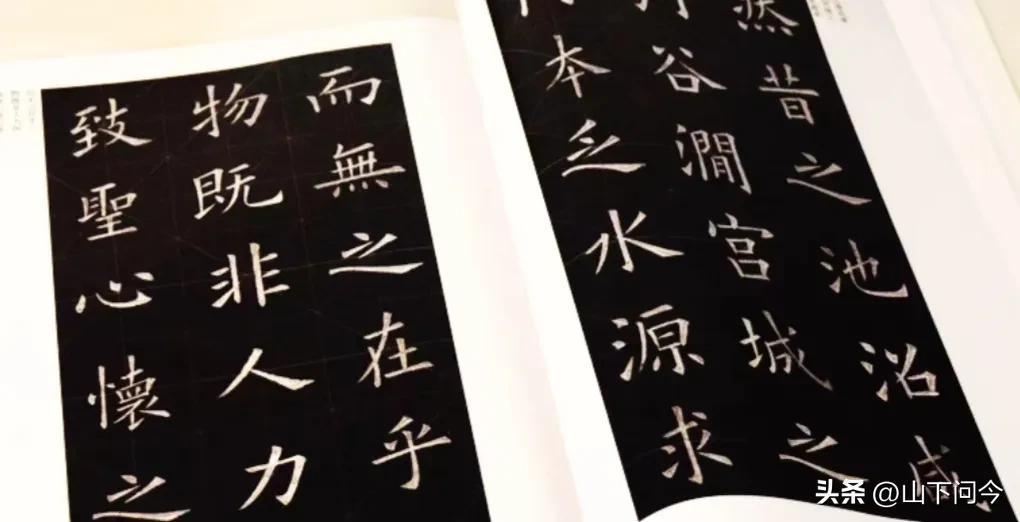 然昔之池沼咸
谷澗宮城之
本乏水源求
而無之在乎
物既非人力
致聖心懷之
头条 @山下问今